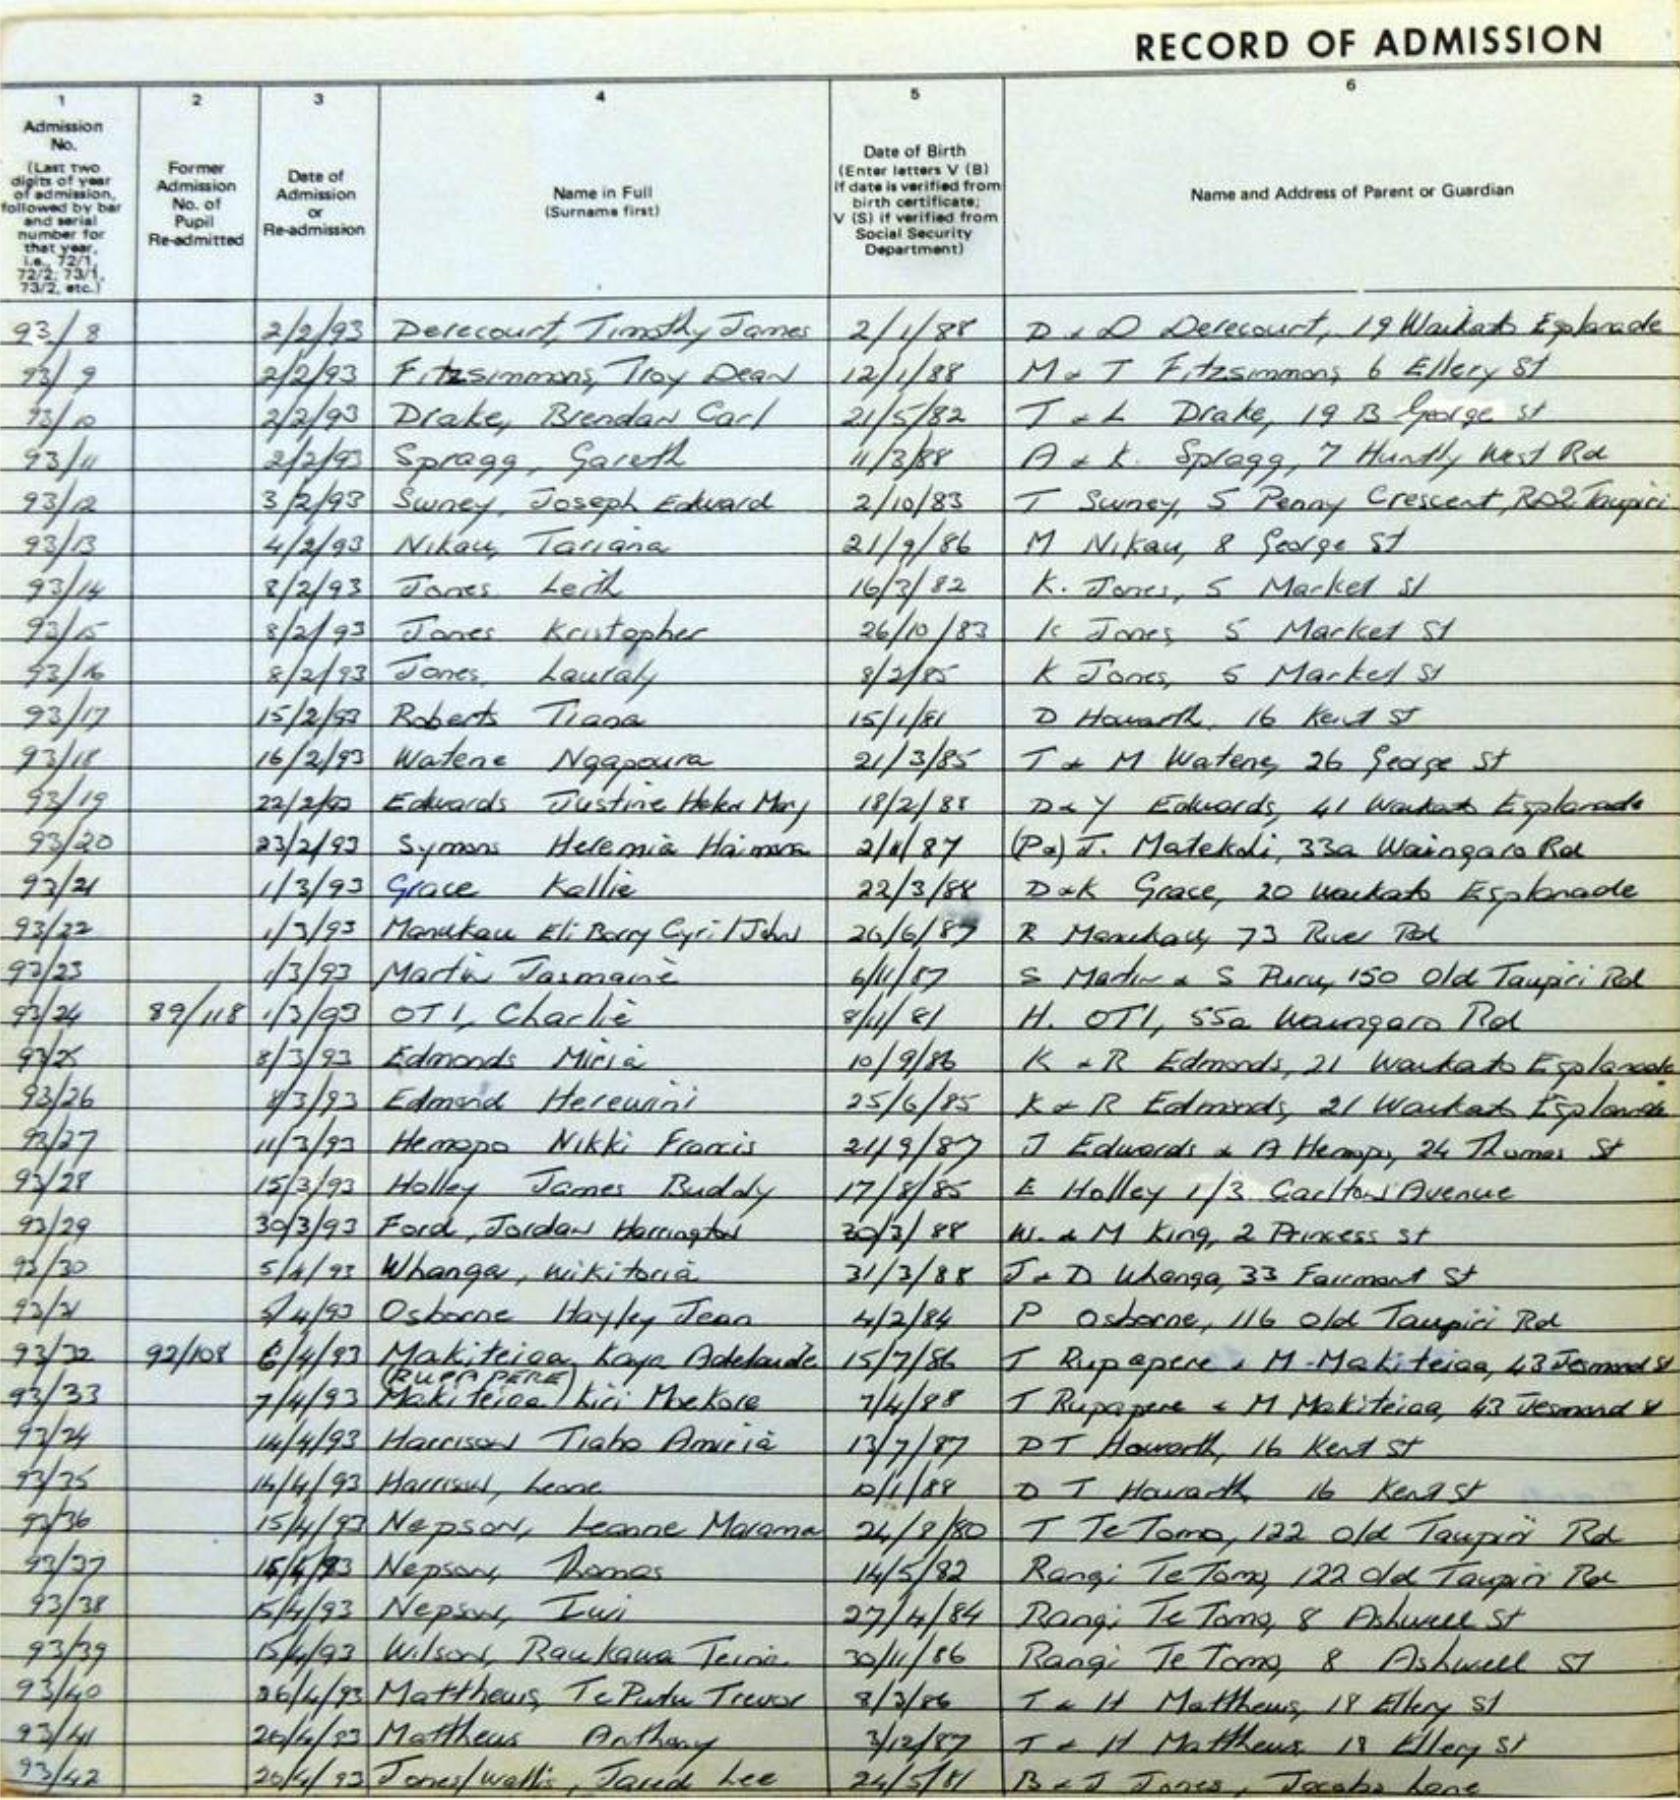 RECORD OF ADMISSION
1 2 3 4 5 6
Admission No. (Last two digits of year of admission, followed by bar and serial number for that year, i.e., 72/1, 72/2, 73/1, 73/2, etc.)
Former Admission No. of Pupil Re-admitted
Date of Admission or Re-admission
Name in Full (Surname first)
Date of Birth (Enter letters V (B) if date is verified from birth certificate; V (S) if verified from Social Security Department)
Name and Address of Parent or Guardian
93/8 2/2/93 Derecourt, Timothy James 2/1/88 D & D Derecourt, 19 Waikato Esplanade
93/9 2/2/93 Fitzsimmons, Troy Dean 12/1/88 M & T Fitzsimmons, 6 Ellery St
93/10 2/2/93 Drake, Brendan Carl 21/5/82 T & L Drake, 19 B George St
93/11 2/2/93 Spragg, Gareth 11/3/88 A & K. Spragg, 7 Huntly West Rd
93/12 3/2/93 Swney, Joseph Edward 2/10/83 T Swney, 5 Penny Crescent, RD2 Taupiri
93/13 4/2/93 Nikau, Tariana 21/9/86 M Nikau, 8 George St
93/14 8/2/93 Jones Leith 16/3/82 K. Jones, 5 Market St
93/15 8/2/93 Jones Kristopher 26/10/83 K Jones, 5 Market St
93/16 8/2/93 Jones, Lauraly 8/2/85 K Jones, 5 Market St
93/17 15/2/93 Roberts Tiana 15/1/81 D Howarth, 16 Kent St
93/18 16/2/93 Watene Ngapoura 21/3/85 T & M Watene, 26 George St
93/19 22/2/93 Edwards Justine Helen Mary 18/2/88 D & Y Edwards, 41 Waikato Esplanade
93/20 23/2/93 Symons Heremia Haimona 2/11/87 (Pa) J. 33a Waingaro Rd
93/21 1/3/93 Grace Kellie 22/3/88 D & K Grace, 20 Waikato Esplanade
93/22 1/3/93 Manukau Eli Barry Cyril John 26/6/87 R Manukau, 73 River Rd
93/23 1/3/93 Martin Jasmaine 6/11/87 S Martin & S Puru, 150 Old Taupiri Rd
93/24 89/118 1/3/93 OTI, Charlie 8/11/81 H. OTI, 55a Waingaro Rd
93/25 8/3/93 Edmonds Miria 10/9/86 K & R Edmonds, 21 Waikato Esplanade
93/26 8/3/93 Edmond Herewini 25/6/85 K & R Edmonds, 21 Waikato Esplanade
93/27 11/3/93 Hemopo Nikki Francis 21/9/87 J Edwards & A Hemopo, 24 Thomas St
93/28 15/3/93 Holley James Buddy 17/8/85 E Holley 1/3 Carlton Avenue
93/29 30/3/93 Ford, Jordan Harrington 30/3/88 W. & M King, 2 Princess St
93/30 5/4/93 Whanga, Wikitoria 31/3/88 J & D Whanga, 33 Fairmont St
93/31 5/4/93 Osborne Hayley Jean 4/2/84 P Osborne, 116 Old Taupiri Rd
93/32 92/108 6/4/93 Makiteiaa, Kaya Adelaide 15/7/86 T Rupapere & M Makiteiaa, 43 Jesmond St
93/33 7/4/93 (RUPAPERE) Makiteiaa Kiri Moekore 7/4/88 T Rupapere & M Makiteiaa, 43 Jesmond St
93/34 14/4/93 Harrison Tiaho Amiria 13/7/87 D T Howarth, 16 Kent St
93/35 14/4/93 Harrison, Leone D T Howarth 16 Kent St
93/36 15/4/93 Nepson, Leanne Marama 24/8/80 T Te Tomo, 122 Old Taupiri Rd
93/37 15/4/93 Nepson, Thomas 14/5/82 Rangi Te Tomo, 122 Old Taupiri Rd
93/38 15/4/93 Nepson, Iwi 27/4/84 Rangi Te Tomo, 8 Ashwell St
93/39 15/4/93 Wilson, Raukawa Teina 30/11/86 Rangi Te Tomo, 8 Ashwell St
93/40 26/4/93 Matthews, Te Putu Trevor 8/3/86 T & H Matthews, 18 Ellery St
93/41 26/4/93 Matthews Anthony 3/12/87 T & H Matthews 18 Ellery St
93/42 20/4/93 Jones/Wallis, Jared Lee 24/5/81 B & J Jones, Jacobs Lane